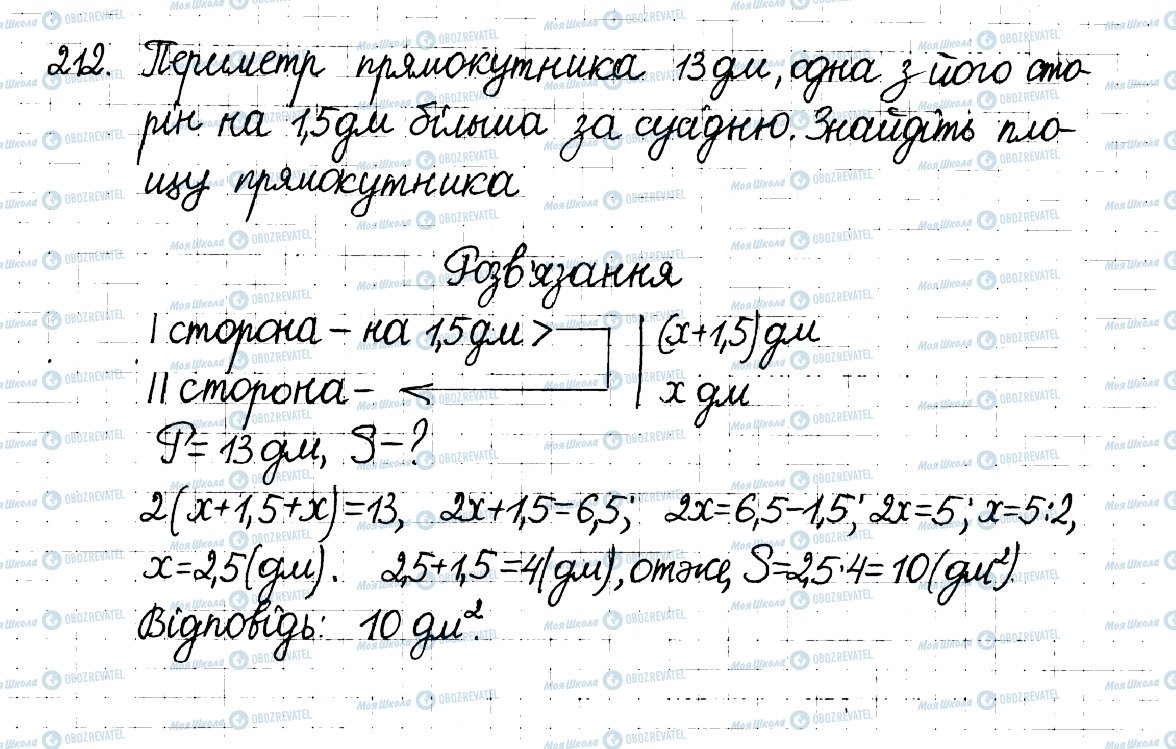 212. Периметр прямокутника 13 дм, одна з його сто-
рін на 1,5 дм більша за сусідню. Знайдіть пло-
щу прямокутника
Розв'язання
I сторона – на 1,5 дм > | (x+1,5) дм
II сторона – | x дм
P = 13 дм, S – ?
2(x+1,5+x)=13, 2x+1,5=6,5; 2x=6,5-1,5; 2x=5; x=5:2,
x=2,5(дм). 2,5+1,5=4(дм), отже, S=2,5·4=10(дм²).
Відповідь: 10 дм².
Моя Школа OBOZREVATEL